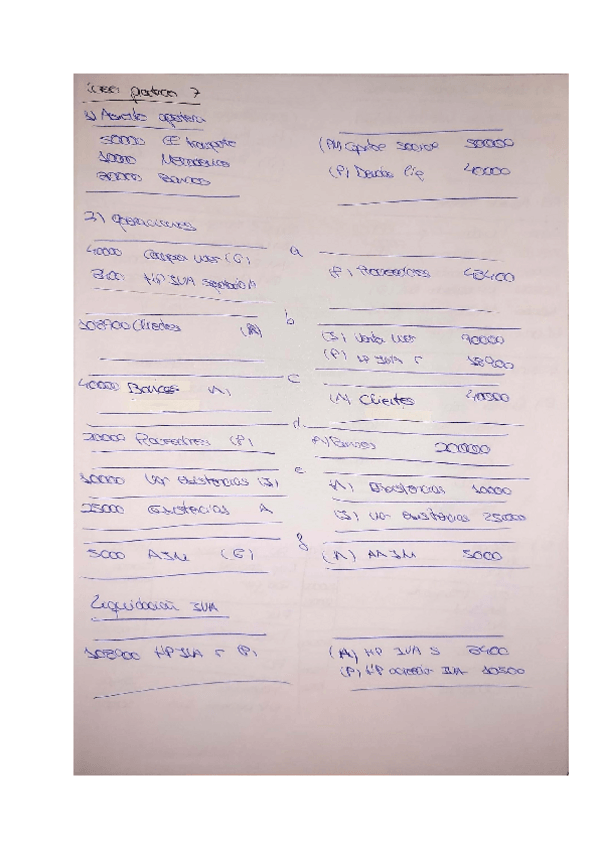 practica 7
1) Asiento apertura
50000 EE transporte (PN) Capital Social 50000
10000 Mercaderias (P) Deudas l/p 40000
30000 Bancos
2) Operaciones
a
40000 Compra mer (G) (P) Proveedores 48400
8400 HP IVA soportado A
b
108900 Clientes (A) (I) Venta mer 90000
(P) HP IVA r 18900
c
40000 Bancos A) (A) Clientes 40000
d
20000 Proveedores (P) A) Bancos 20000
e
10000 Var existencias (I) (A) Existencias 10000
25000 Existencias A (I) var existencias 25000
f
5000 AIM (G) (A) AAIM 5000
Liquidación IVA
108900 HP IVA r (P) (A) HP IVA S 8400
(P) HP acreedor IVA 10500